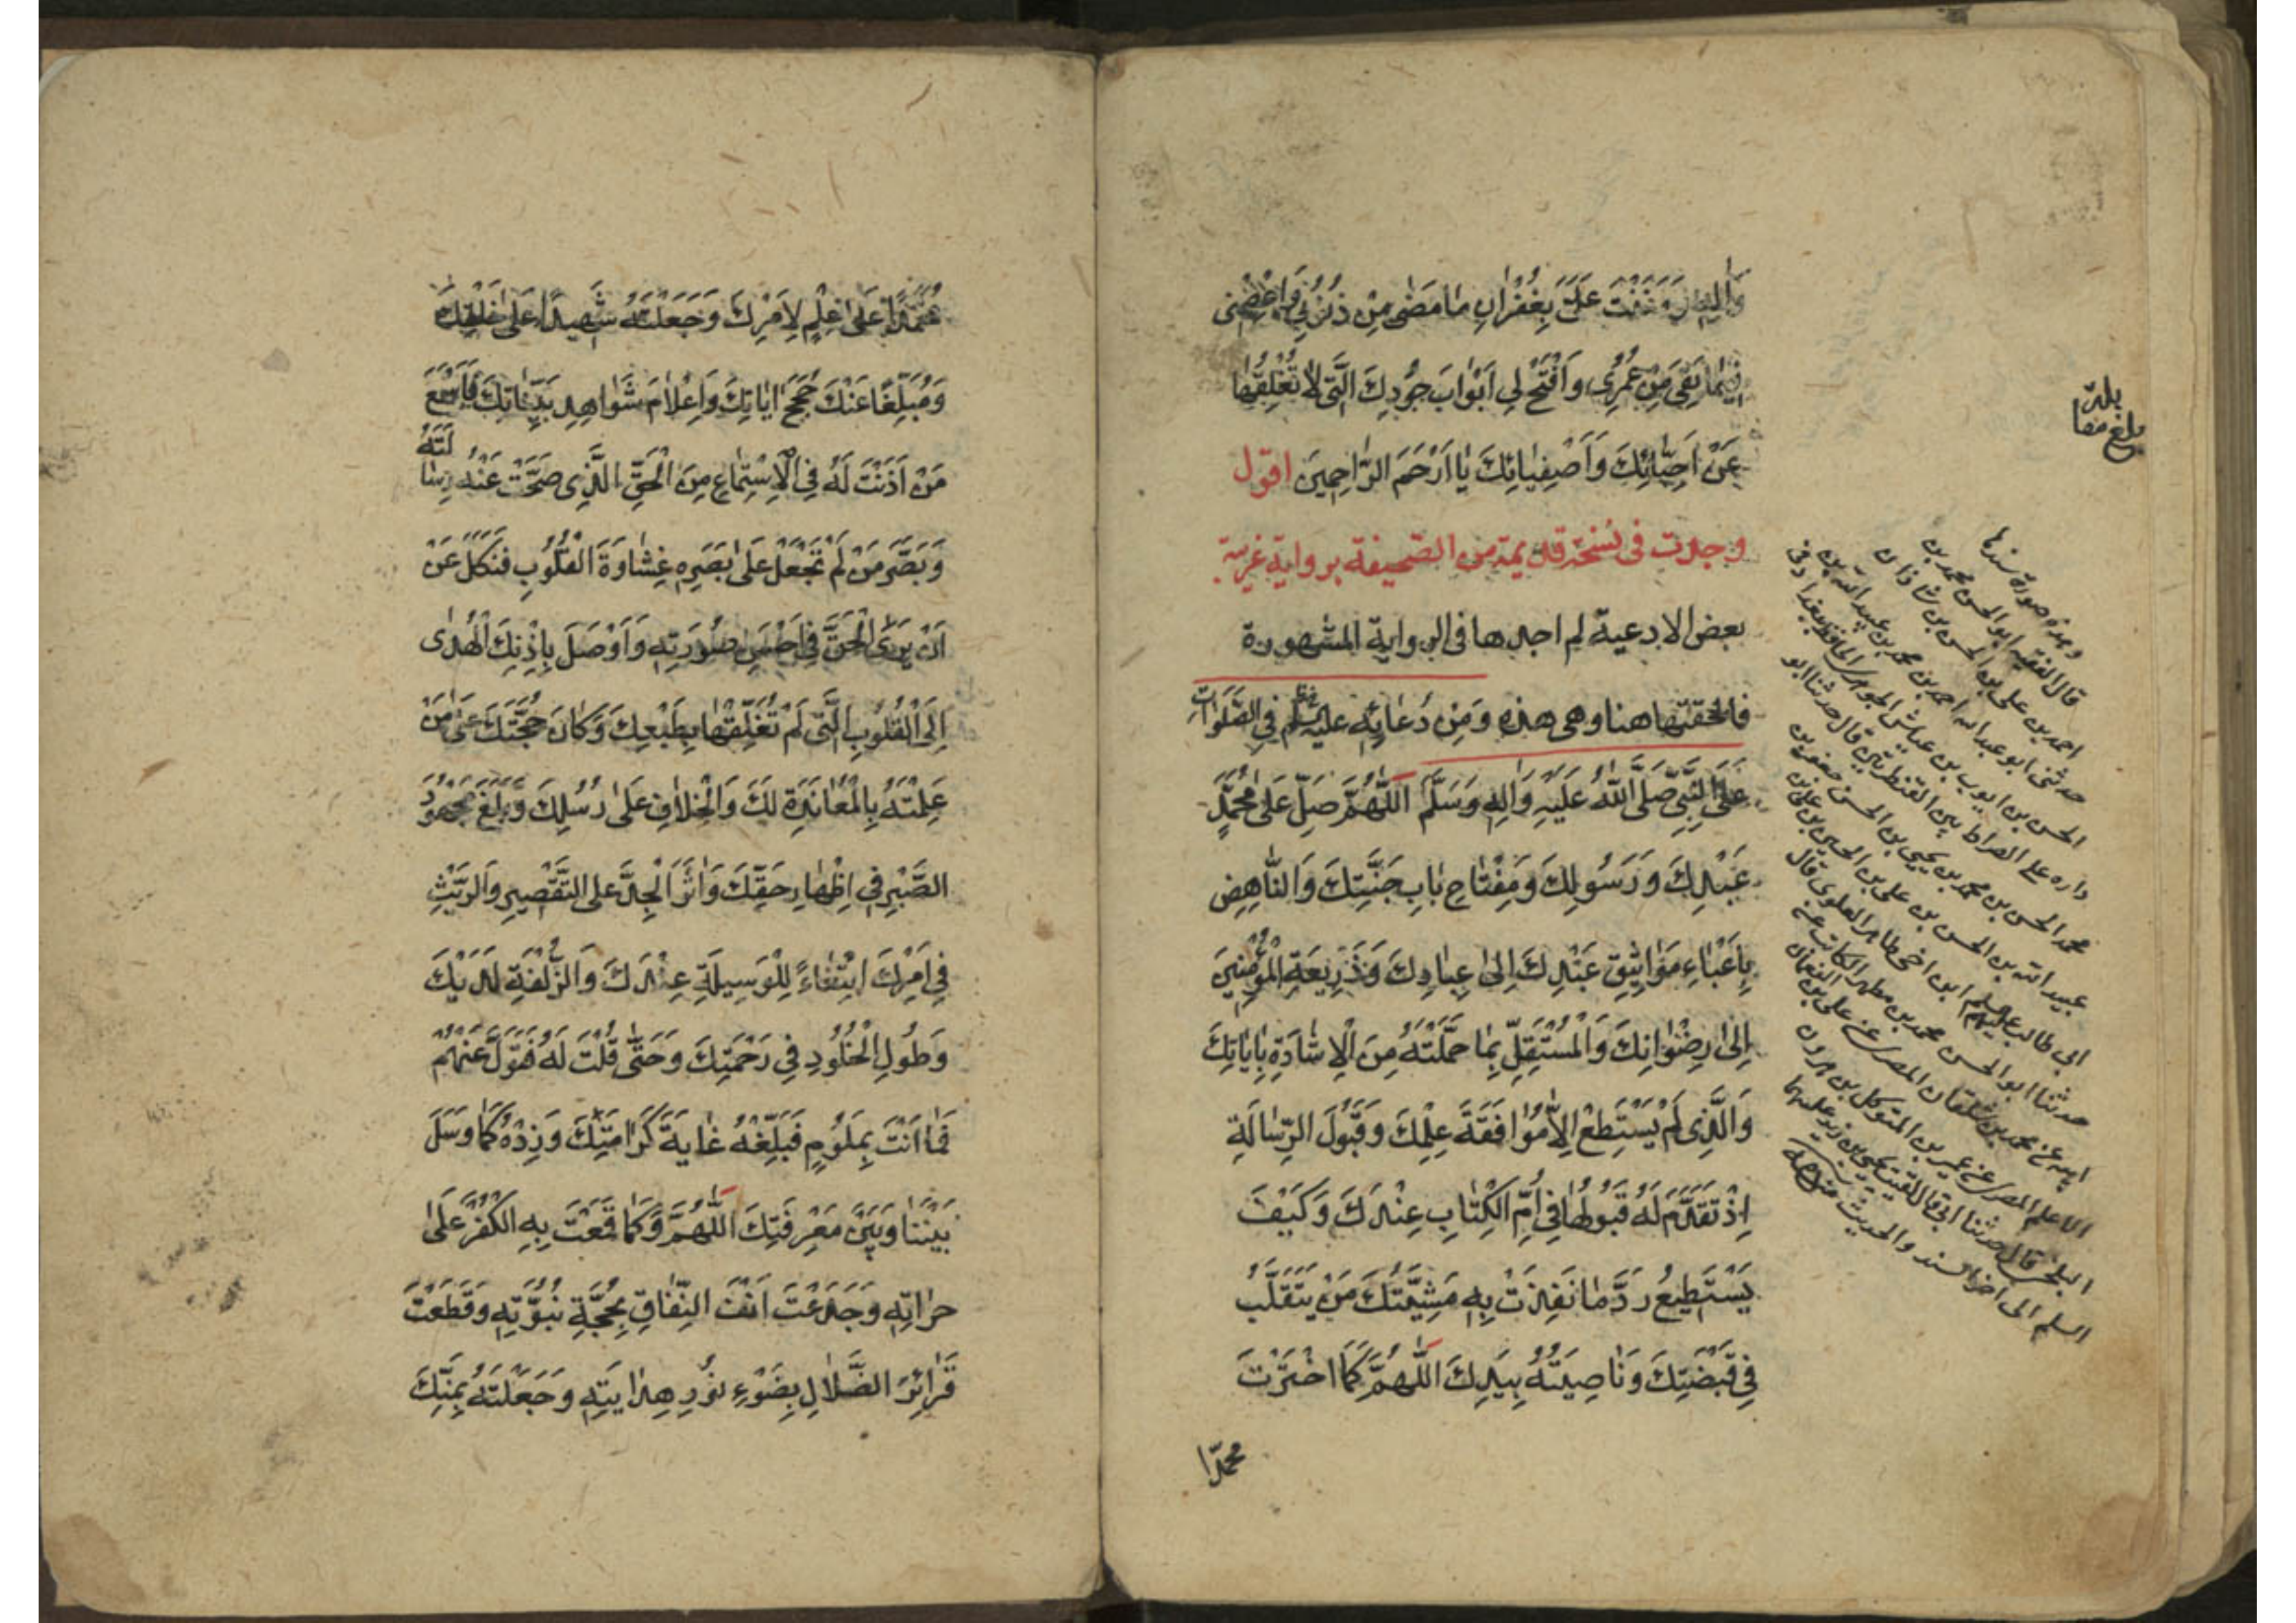 بِغُفْرَانِ مَا مَضٰى مِنْ ذُنُوبِي وَاعْصِمْنِي
فِيمَا بَقِيَ مِنْ عُمُرِي وَافْتَحْ لِي اَبْوَابَ جُودِكَ الَّتِي لَا تُغْلِقُهَا
عَنْ اَحِبَّائِكَ وَاَصْفِيَائِكَ يَا اَرْحَمَ الرَّاحِمِينَ اقول
وجدت فى نسخة قديمة من الصحيفة برواية غريبة
بعض الادعية لم اجدها فى الرواية المشهورة
فالحقتها هنا وهى هذه وَمِنْ دُعَائِهِ عليه السلم فِي الصَّلَوَاتِ
عَلَى النَّبِيِّ صَلَّى اللّٰهُ عَلَيْهِ وَاٰلِهِ وَسَلَّمَ اَللّٰهُمَّ صَلِّ عَلٰى مُحَمَّدٍ
عَبْدِكَ وَرَسُولِكَ وَمِفْتَاحِ بَابِ جَنَّتِكَ وَالنَّاهِضِ
بِاَعْبَاءِ مَوَاثِيقِ عَبْدِكَ اِلٰى عِبَادِكَ وَذَرِيعَةِ الْمُؤْمِنِينَ
اِلٰى رِضْوَانِكَ وَالْمُسْتَقِلِّ بِمَا حَمَّلْتَهُ مِنَ الْاِشَادَةِ بِاٰيَاتِكَ
وَالَّذِي لَمْ يَسْتَطِعْ اِلَّا مُوَافَقَةَ عِلْمِكَ وَقَبُولَ الرِّسَالَةِ
اِذْ تَقَدَّمَ لَهُ قَبُولُهَا فِي اُمِّ الْكِتَابِ عِنْدَكَ وَكَيْفَ
يَسْتَطِيعُ رَدَّ مَا نَفِذَتْ بِهِ مَشِيَّتُكَ مَنْ يَتَقَلَّبُ
فِي قَبْضَتِكَ وَنَاصِيَتُهُ بِيَدِكَ اَللّٰهُمَّ كَمَا اخْتَرْتَ
محمدا
بلغ
وهذه صورة سندها
قال الفقيه ابو الحسن محمد بن
احمد بن على بن الحسن بن شاذان
حدثنى ابو عبد الله احمد بن محمد بن عبيد الله بن
الحسن بن ايوب بن عياش الجوهرى الحافظ ببغداد فى
داره على الصراط بين القنطرتين قال حدثنا ابو
محمد الحسن بن محمد بن يحيى بن الحسن بن جعفر بن
عبيد الله بن الحسن بن على بن الحسين بن على بن
ابى طالب عليهم السلم ابن اخى طاهر العلوى قال
حدثنا ابو الحسن محمد بن مطهر الكاتب عن
ابيه عن محمد بن شلقان المصرى عن على بن النعمان
الاعلم المصرى عن عمير بن المتوكل بن هرون
البلخى قال حدثنا ابى قال لقيت يحيى بن زيد عليهما
السلم الى اخر السند والحديث
مُحَمَّدًا عَلٰى عِلْمٍ لِاَمْرِكَ وَجَعَلْتَهُ شَهِيدًا عَلٰى خَلْقِكَ
وَمُبَلِّغًا عَنْكَ حُجَجَ اٰيَاتِكَ وَاَعْلَامَ شَوَاهِدِ بَيِّنَاتِكَ فَاَسْمَعَ
مَنْ اَذِنْتَ لَهُ فِي الْاِسْتِمَاعِ مِنَ الْحَقِّ الَّذِي صَحَّتْ عَنْهُ رِسَالَتُهُ
وَبَصَّرَ مَنْ لَمْ تَجْعَلْ عَلٰى بَصَرِهِ غِشَاوَةَ الْقُلُوبِ فَنَكَلَ عَنْ
اَنْ يَرَى الْحَقَّ فِي اَحْسَنِ صُورَتِهِ وَاَوْصَلَ بِاِذْنِكَ الْهُدٰى
اِلَى الْقُلُوبِ الَّتِي لَمْ تُغَلِّقْهَا بِطَبْعِكَ وَكَانَ حُجَّتَكَ عَلٰى مَنْ
عَلِمْتَهُ بِالْمُعَانَدَةِ لَكَ وَالْخِلَافِ عَلٰى رُسُلِكَ وَبَلَغَ مَجْهُودَ
الصَّبْرِ فِي اِظْهَارِ حَقِّكَ وَاٰثَرَ الْجِدَّ عَلَى التَّقْصِيرِ وَالرَّيْثِ
فِي اَمْرِكَ ابْتِغَاءً لِلْوَسِيلَةِ عِنْدَكَ وَالزُّلْفَةِ لَدَيْكَ
وَطُولِ الْخُلُودِ فِي رَحْمَتِكَ وَحَتّٰى قُلْتَ لَهُ فَتَوَلَّ عَنْهُمْ
فَمَا اَنْتَ بِمَلُومٍ فَبَلِّغْهُ غَايَةَ كَرَامَتِكَ وَزِدْهُ كَمَا وَسَّلَ
بَيْنَنَا وَبَيْنَ مَعْرِفَتِكَ اَللّٰهُمَّ وَكَمَا قَمَعْتَ بِهِ الْكُفْرَ عَلٰى
جراتِهِ وَجَدَعْتَ اَنْفَ النِّفَاقِ بِحُجَّةِ نُبُوَّتِهِ وَقَطَعْتَ
قَرَائِنَ الضَّلَالِ بِضَوْءِ نُورِ هِدَايَتِهِ وَجَعَلْتَهُ بِمَنِّكَ